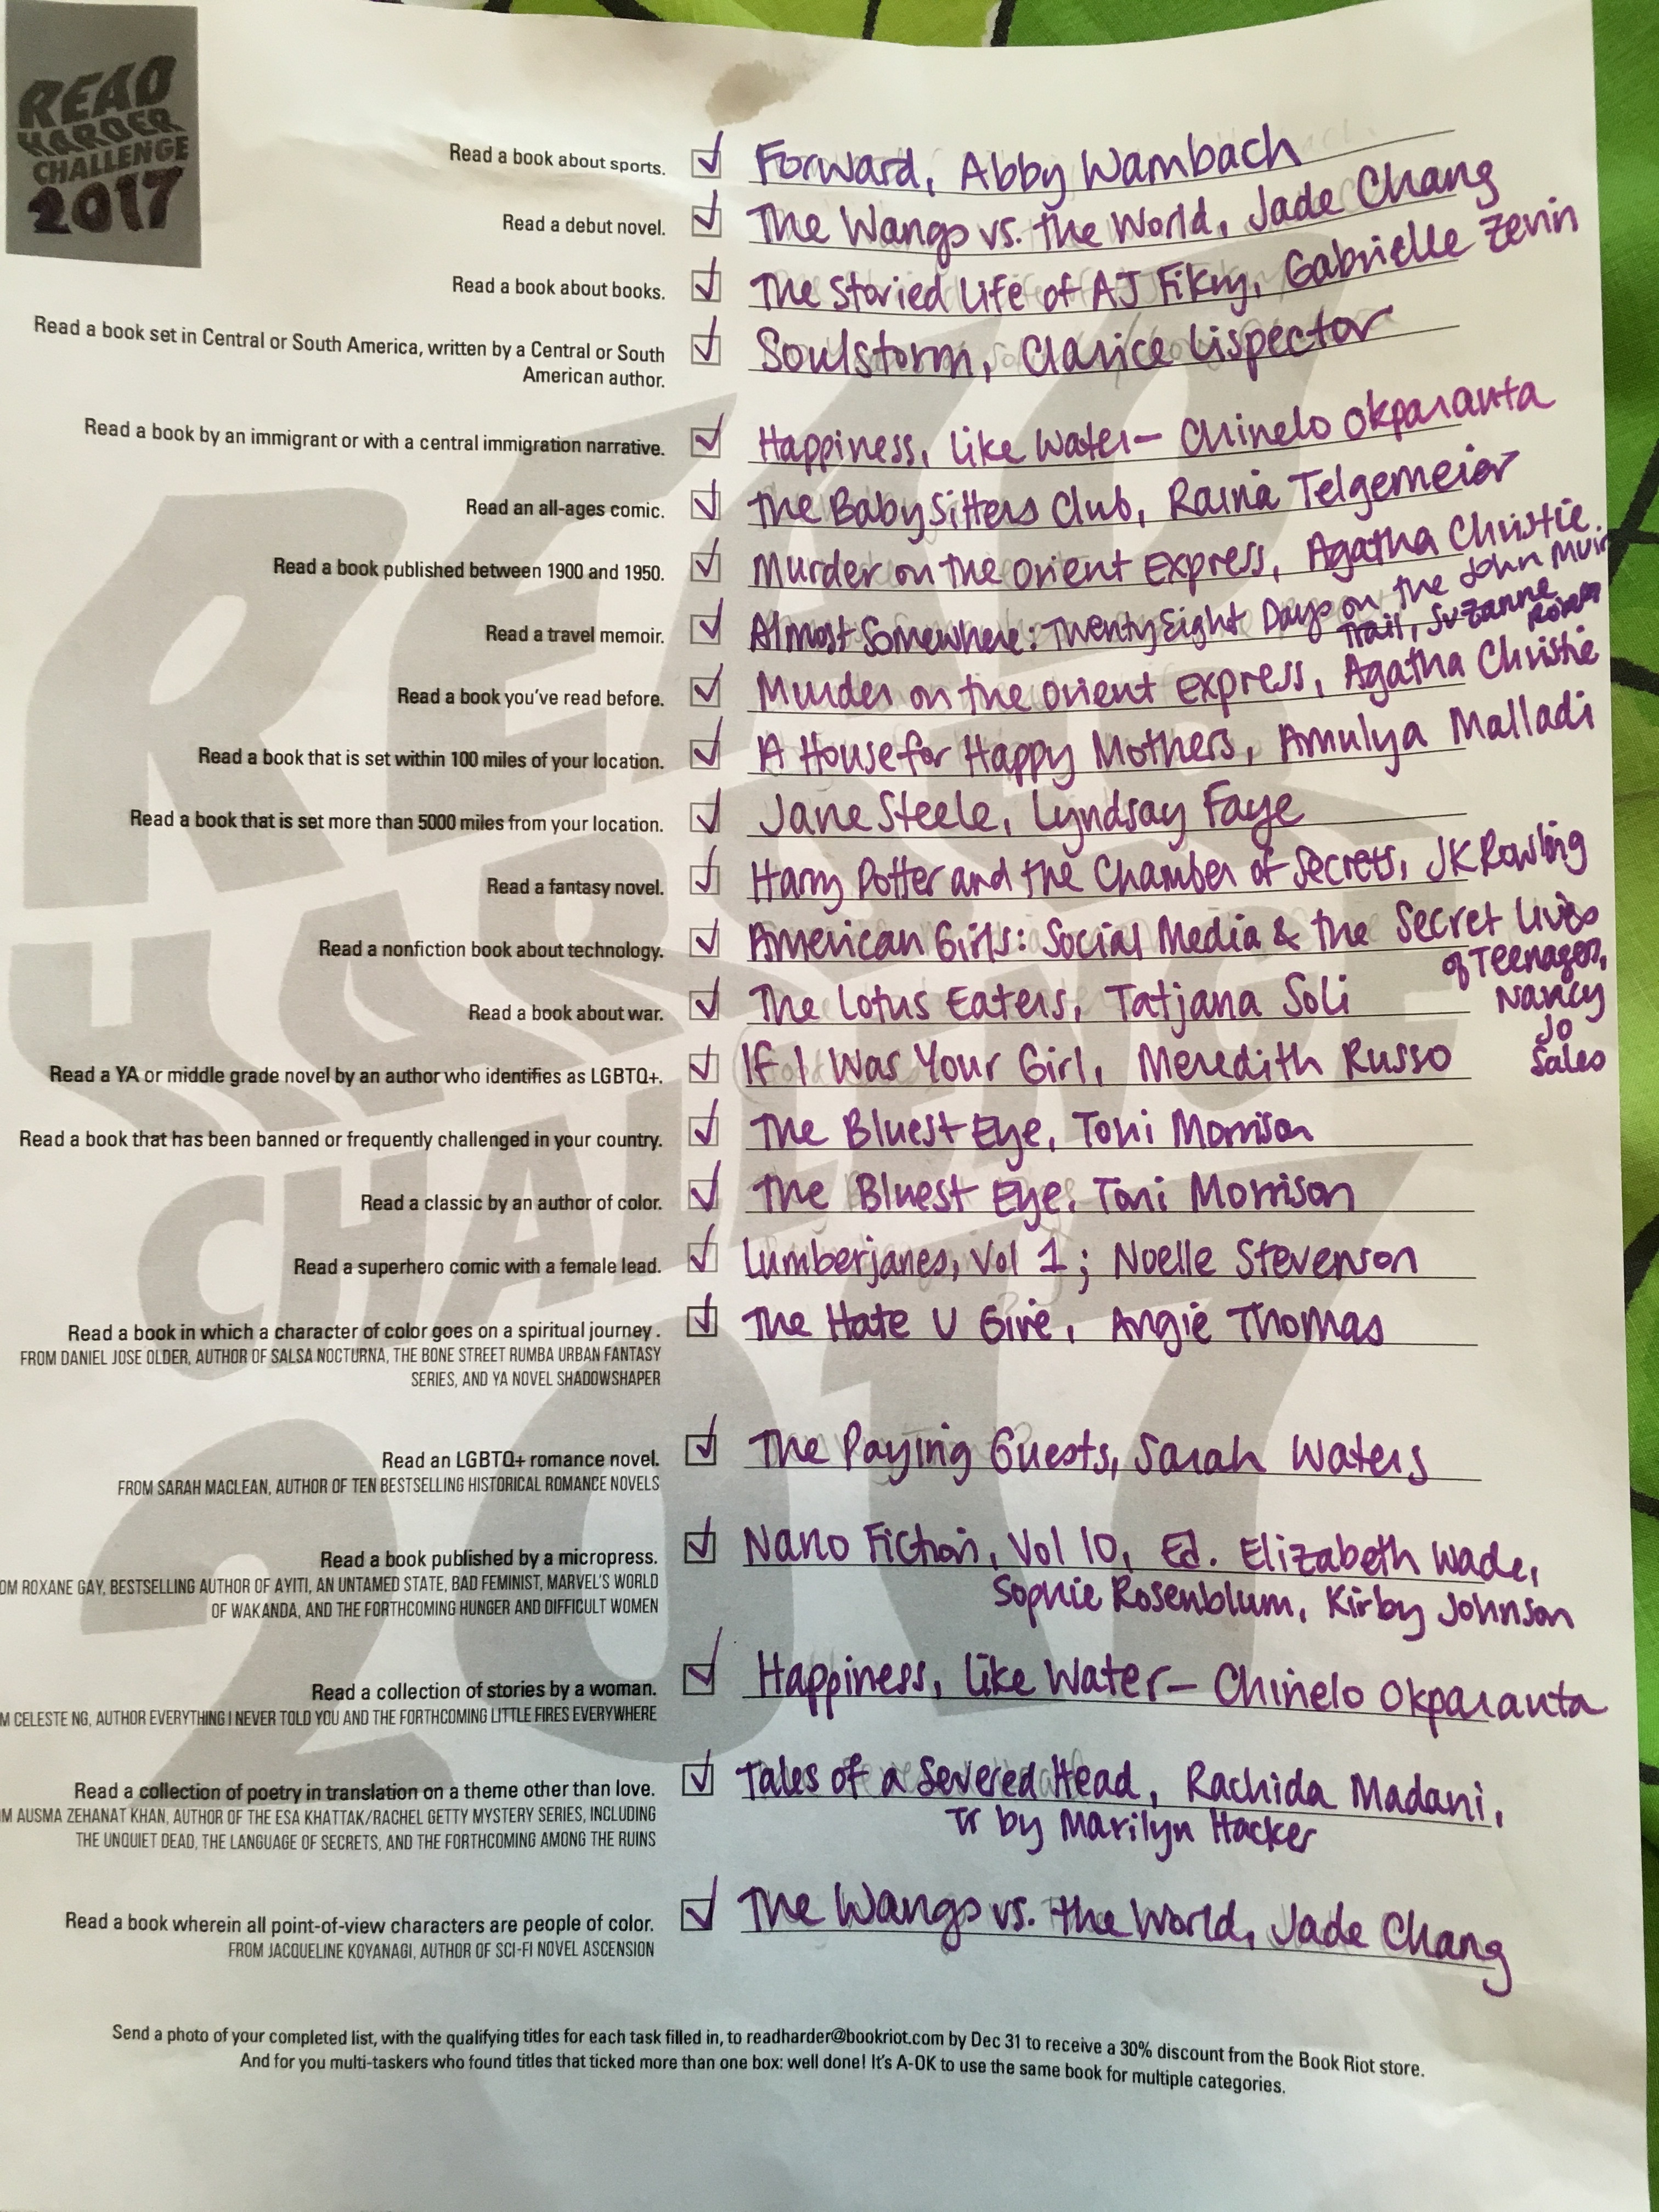 READ
HARDER
CHALLENGE
2017
Read a book about sports. Forward, Abby Wambach
Read a debut novel. The Wangs vs. the World, Jade Chang
Read a book about books. The Storied Life of AJ Fikry, Gabrielle Zevin
Read a book set in Central or South America, written by a Central or South
American author. Soulstorm, Clarice Lispector
Read a book by an immigrant or with a central immigration narrative. Happiness, like Water - Chinelo Okparanta
Read an all-ages comic. The Baby Sitters Club, Raina Telgemeier
Read a book published between 1900 and 1950. Murder on the Orient Express, Agatha Christie.
Read a travel memoir. Almost Somewhere: Twenty Eight Days on the John Muir
Trail, Suzanne
Roberts
Read a book you've read before. Murder on the Orient Express, Agatha Christie
Read a book that is set within 100 miles of your location. A House for Happy Mothers, Amulya Malladi
Read a book that is set more than 5000 miles from your location. Jane Steele, Lyndsay Faye
Read a fantasy novel. Harry Potter and the Chamber of Secrets, JK Rowling
Read a nonfiction book about technology. American Girls: Social Media & the Secret Lives
of Teenagers,
Nancy
Jo
Sales
Read a book about war. The Lotus Eaters, Tatjana Soli
Read a YA or middle grade novel by an author who identifies as LGBTQ+. If I Was Your Girl, Meredith Russo
Read a book that has been banned or frequently challenged in your country. The Bluest Eye, Toni Morrison
Read a classic by an author of color. The Bluest Eye, Toni Morrison
Read a superhero comic with a female lead. Lumberjanes, Vol 1; Noelle Stevenson
Read a book in which a character of color goes on a spiritual journey. The Hate U Give, Angie Thomas
FROM DANIEL JOSE OLDER, AUTHOR OF SALSA NOCTURNA, THE BONE STREET RUMBA URBAN FANTASY
SERIES, AND YA NOVEL SHADOWSHAPER
Read an LGBTQ+ romance novel. The Paying Guests, Sarah Waters
FROM SARAH MACLEAN, AUTHOR OF TEN BESTSELLING HISTORICAL ROMANCE NOVELS
Read a book published by a micropress. Nano Fiction, Vol 10, Ed. Elizabeth Wade,
Sophie Rosenblum, Kirby Johnson
OM ROXANE GAY, BESTSELLING AUTHOR OF AYITI, AN UNTAMED STATE, BAD FEMINIST, MARVEL'S WORLD
OF WAKANDA, AND THE FORTHCOMING HUNGER AND DIFFICULT WOMEN
Read a collection of stories by a woman. Happiness, like Water - Chinelo Okparanta
M CELESTE NG, AUTHOR EVERYTHING I NEVER TOLD YOU AND THE FORTHCOMING LITTLE FIRES EVERYWHERE
Read a collection of poetry in translation on a theme other than love. Tales of a Severed Head, Rachida Madani,
tr by Marilyn Hacker
M AUSMA ZEHANAT KHAN, AUTHOR OF THE ESA KHATTAK/RACHEL GETTY MYSTERY SERIES, INCLUDING
THE UNQUIET DEAD, THE LANGUAGE OF SECRETS, AND THE FORTHCOMING AMONG THE RUINS
Read a book wherein all point-of-view characters are people of color. The Wangs vs. the World, Jade Chang
FROM JACQUELINE KOYANAGI, AUTHOR OF SCI-FI NOVEL ASCENSION
Send a photo of your completed list, with the qualifying titles for each task filled in, to readharder@bookriot.com by Dec 31 to receive a 30% discount from the Book Riot store.
And for you multi-taskers who found titles that ticked more than one box: well done! It's A-OK to use the same book for multiple categories.
READ
HARDER
CHALLENGE
2017